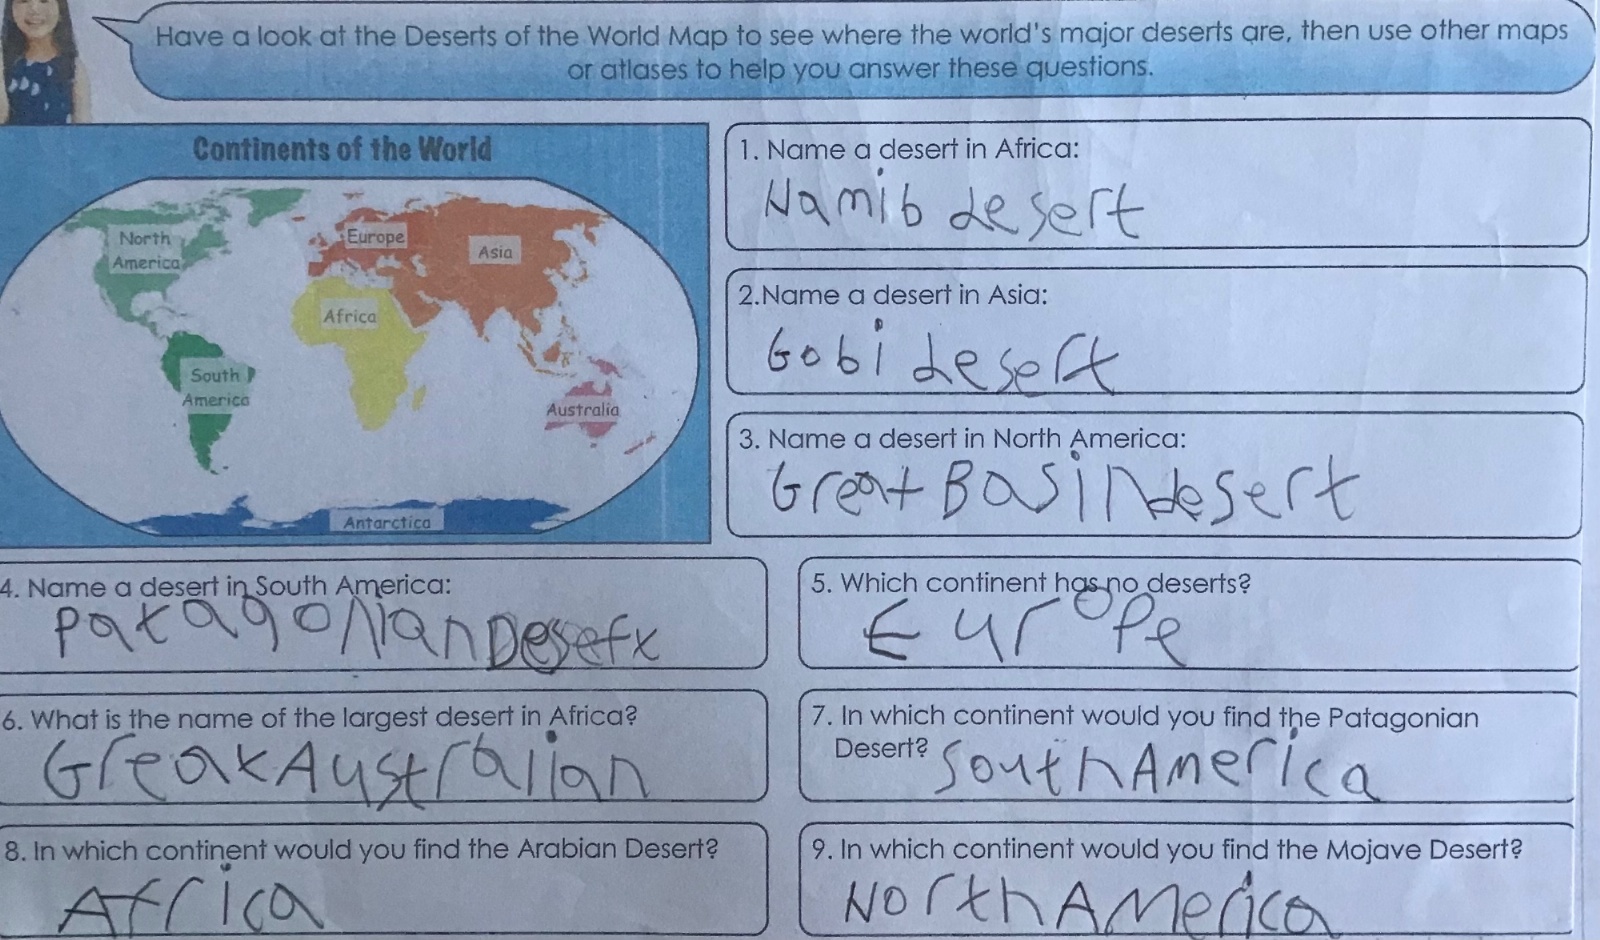 Have a look at the Deserts of the World Map to see where the world's major deserts are, then use other maps
or atlases to help you answer these questions.
Continents of the World
North
America
Europe
Asia
Africa
South
America
Australia
Antarctica
1. Name a desert in Africa:
Namib desert
2.Name a desert in Asia:
Gobi desert
3. Name a desert in North America:
Great Basin desert
4. Name a desert in South America:
Patagonian Desert
5. Which continent has no deserts?
Europe
6. What is the name of the largest desert in Africa?
Great Australian
7. In which continent would you find the Patagonian
Desert? South America
8. In which continent would you find the Arabian Desert?
Africa
9. In which continent would you find the Mojave Desert?
North America